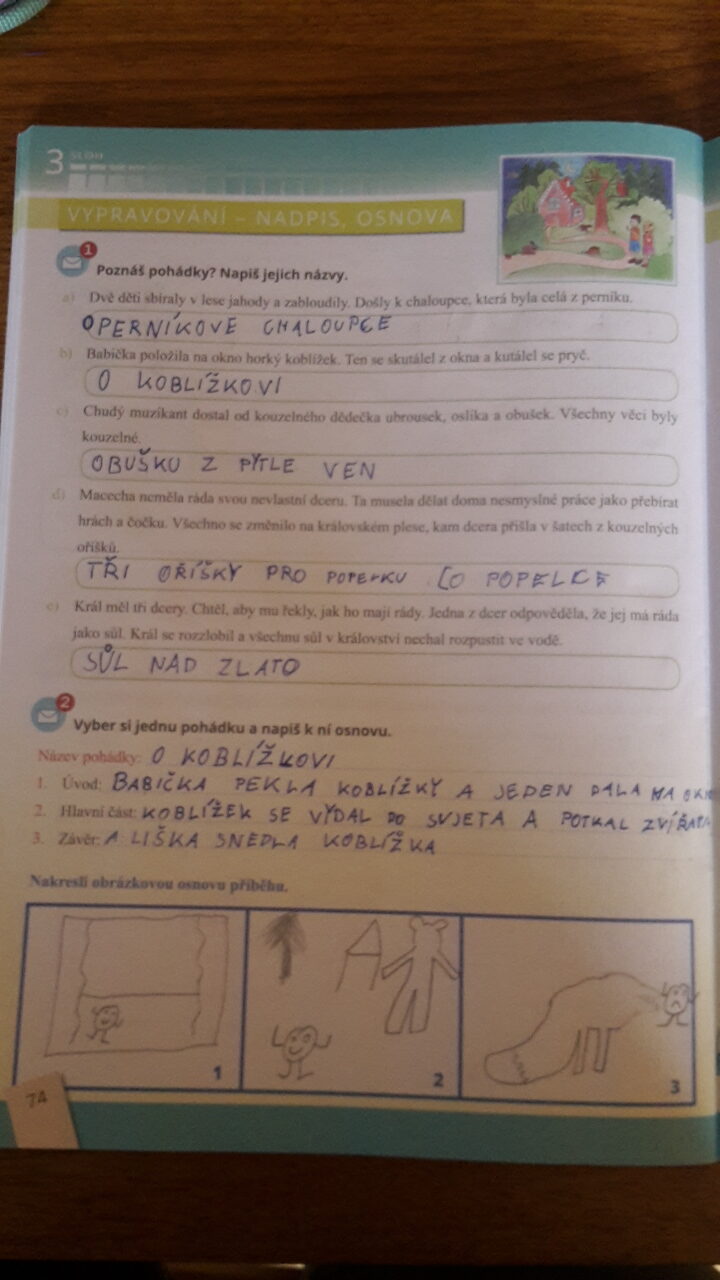 3 SLOH
VYPRAVOVÁNÍ – NADPIS, OSNOVA
1
Poznáš pohádky? Napiš jejich názvy.
a) Dvě děti sbíraly v lese jahody a zabloudily. Došly k chaloupce, která byla celá z perníku.
O PERNÍKOVE CHALOUPCE
b) Babička položila na okno horký koblížek. Ten se skutálel z okna a kutálel se pryč.
O KOBLÍŽKOVI
c) Chudý muzikant dostal od kouzelného dědečka ubrousek, oslíka a obušek. Všechny věci byly
kouzelné.
OBUŠKU Z PYTLE VEN
d) Macecha neměla ráda svou nevlastní dceru. Ta musela dělat doma nesmyslné práce jako přebírat
hrách a čočku. Všechno se změnilo na královském plese, kam dcera přišla v šatech z kouzelných
oříšků.
TŘI OŘÍŠKY PRO POPEKU (O POPELCE
e) Král měl tři dcery. Chtěl, aby mu řekly, jak ho mají rády. Jedna z dcer odpověděla, že jej má ráda
jako sůl. Král se rozzlobil a všechnu sůl v království nechal rozpustit ve vodě.
SŮL NAD ZLATO
2
Vyber si jednu pohádku a napiš k ní osnovu.
Název pohádky: O KOBLÍŽKOVI
1. Úvod: BABIČKA PEKLA KOBLÍŽKY A JEDEN DALA NA OKNO
2. Hlavní část: KOBLÍŽEK SE VYDAL DO SVJETA A POTKAL ZVÍŘATA
3. Závěr: A LIŠKA SNEDLA KOBLÍŽKA
Nakresli obrázkovou osnovu příběhu.
1 2 3
74